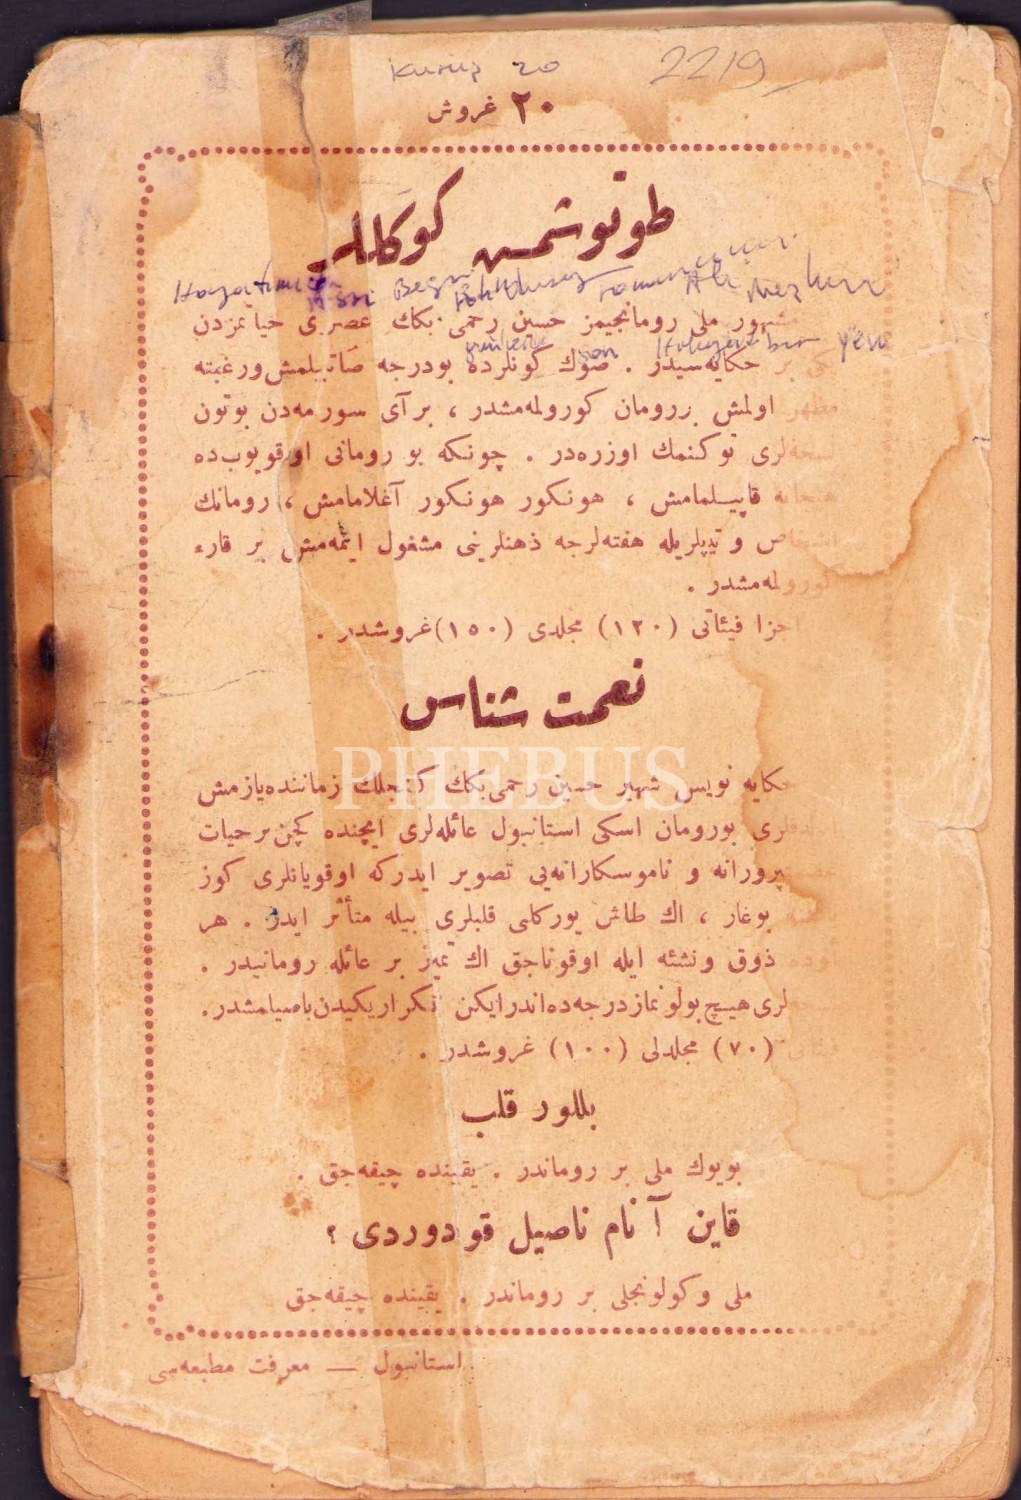 kuruş 20 2219
٢٠ غروش
طوتوشمش کوکللر
مشهور ملی رومانجیمز حسین رحمی بکك عصری حیاتمزدن
بر حکایه‌سیدر . صوك کونلرده بودرجه صاتیلمش ورغبته
مظهر اولمش بررومان کورولمه‌مشدر ، بر آی سورمه‌دن بوتون
نسخه‌لری توکنمك اوزره‌در . چونکه بو رومانی اوقویوب‌ده
قاپیلمامش ، هونکور هونکور آغلامامش ، رومانك
و تیپلریله هفته‌لرجه ذهنلرینی مشغول ایتمه‌مش بر قارء
کورولمه‌مشدر .
جزا فیئاتی (١٢٠) مجلدی (١٥٠) غروشدر .
نعمت شناس
حکایه نویس شهیر حسین رحمی بکك کنجلك زماننده یازمش
بورومان اسکی استانبول عائله‌لری ایچنده کچن بر حیات
پرورانه و ناموسکارانه‌یی تصویر ایدرکه اوقویانلری کوز
بوغار ، اك طاش یورکلی قلبلری بیله متأثر ایدر . هر
ذوق ونشئه ایله اوقوناجق اك تمیز بر عائله رومانیدر .
هیچ بولونماز درجه‌ده اندر ایکن تکرار یکیدن باصیلمشدر .
فیئاتی (٧٠) مجلدلی (١٠٠) غروشدر .
بللور قلب
بویوك ملی بر روماندر . یقینده چیقه‌جق .
قاین آنام ناصیل قودوردی ؟
ملی وکولونجلی بر روماندر . یقینده چیقه‌جق
استانبول — معرفت مطبعه‌سی
PHEBUS